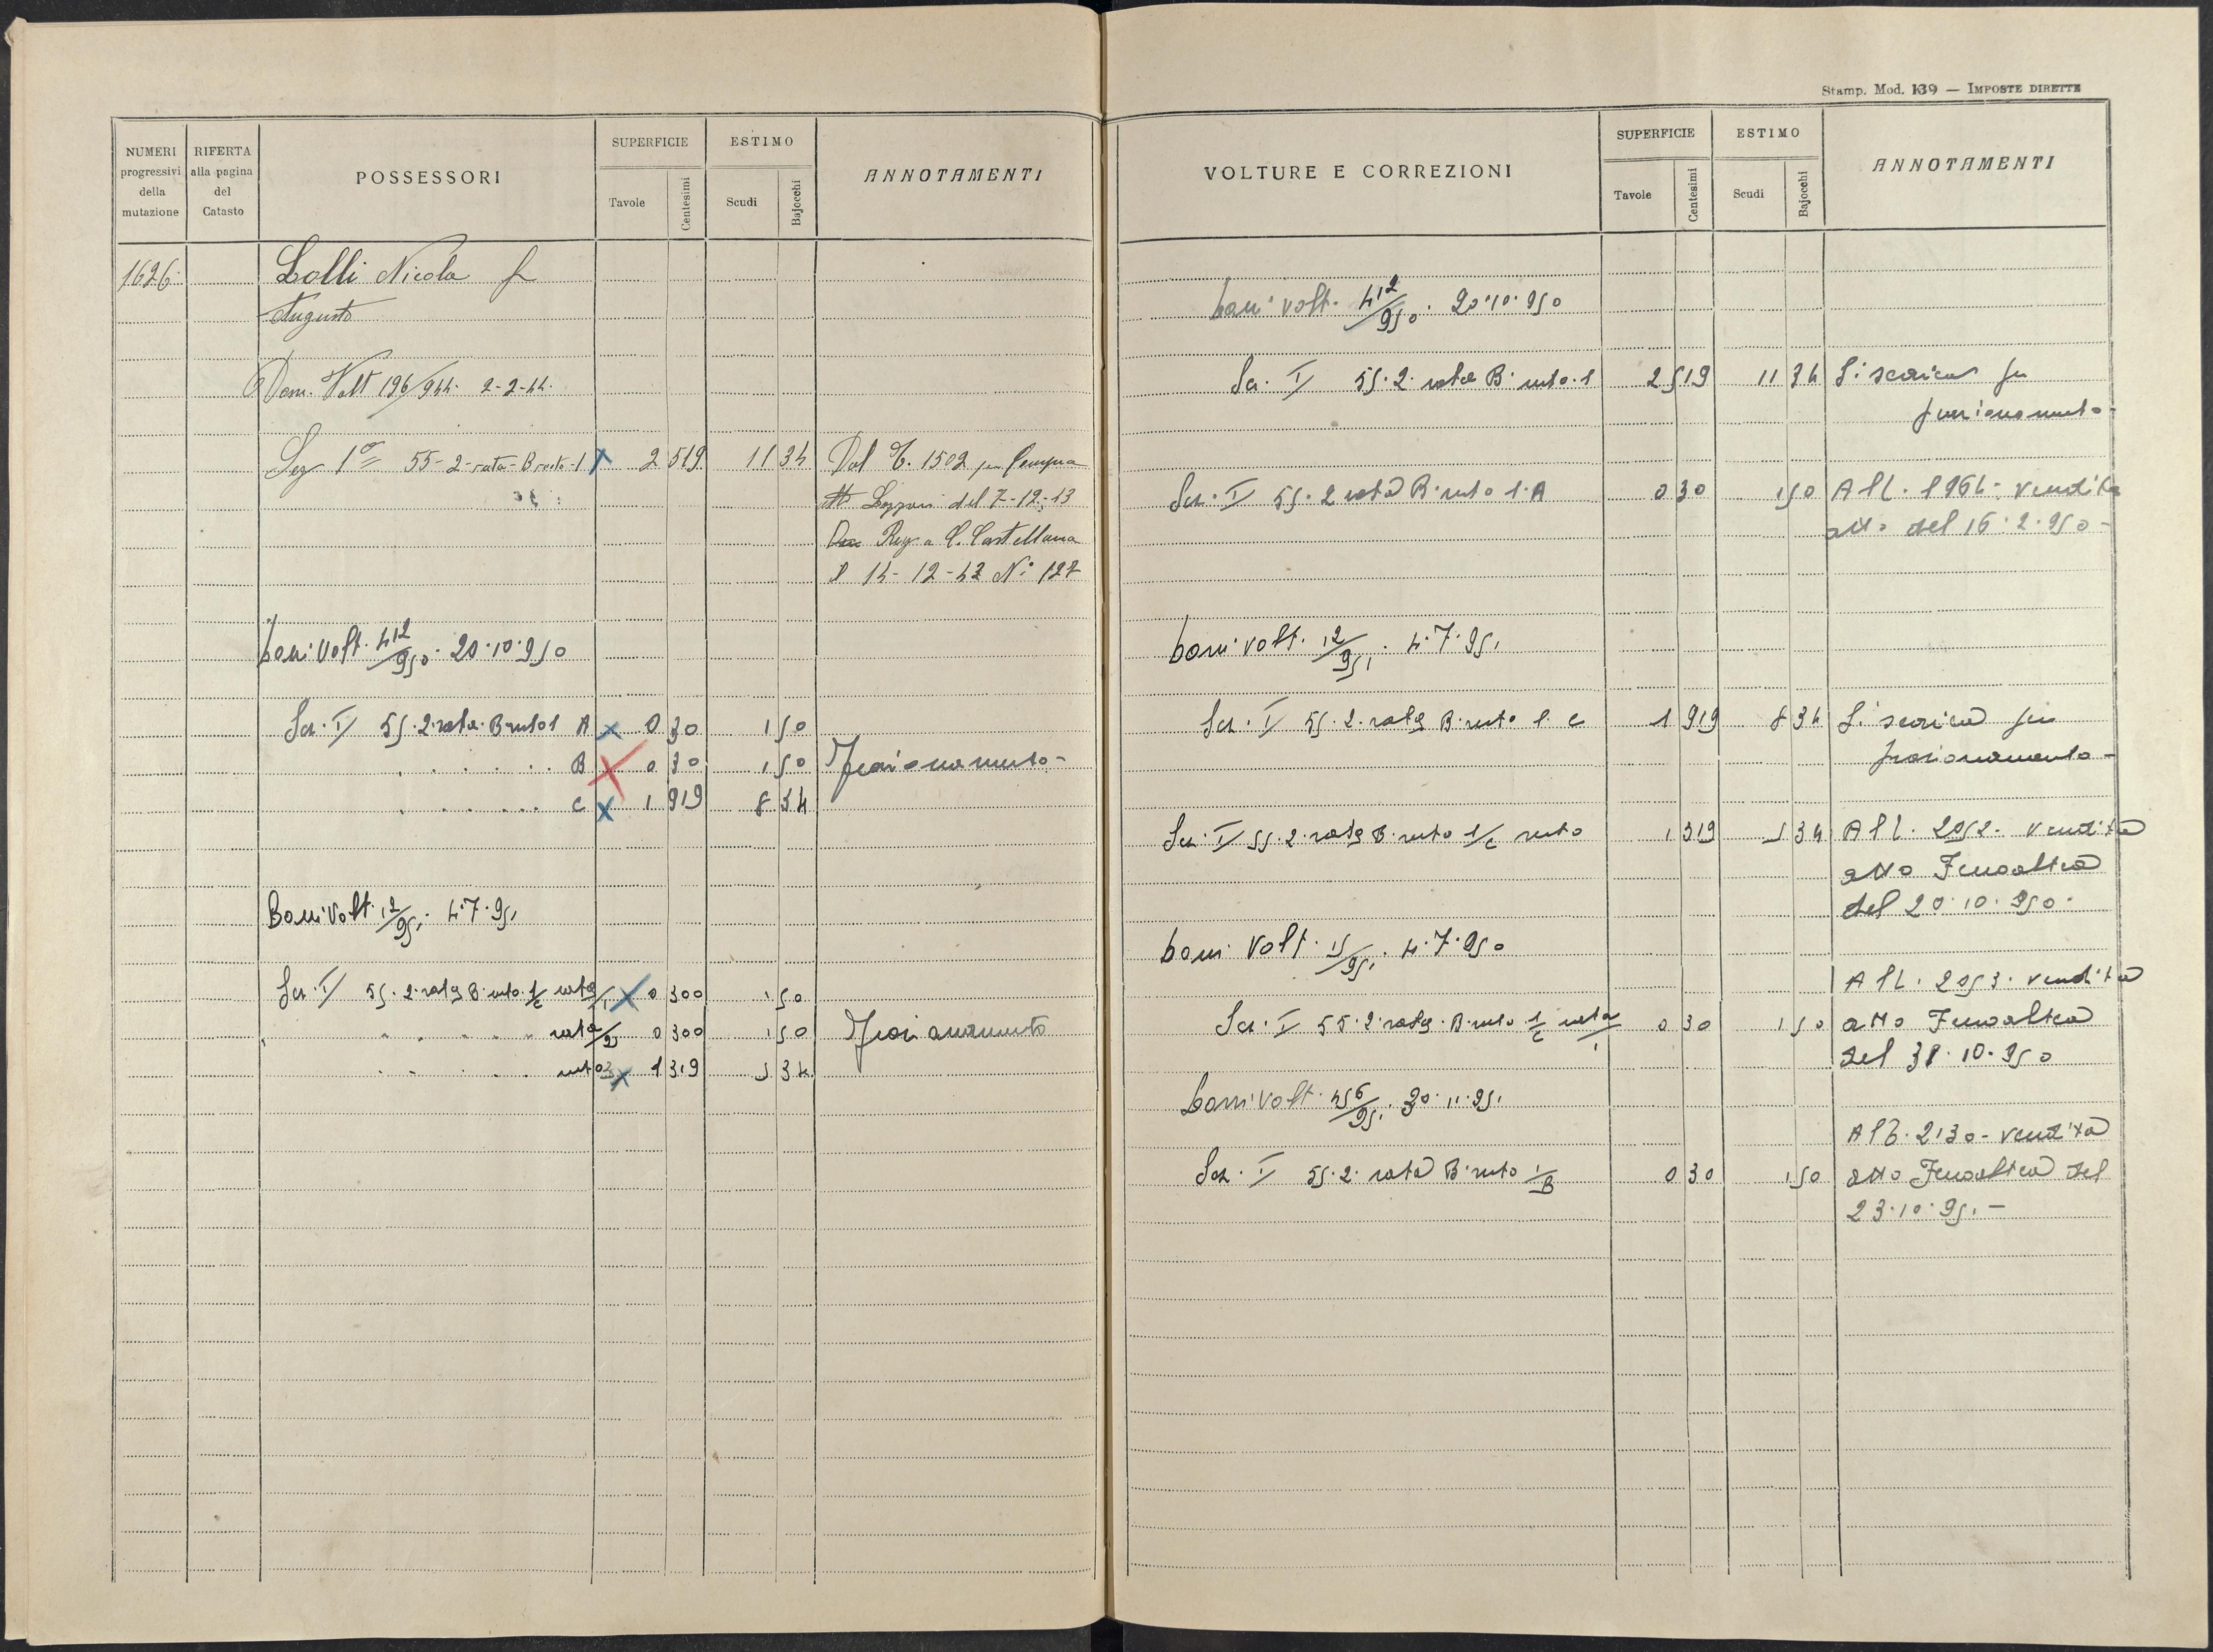 NUMERI progressivi della mutazione
RIFERTA alla pagina del Catasto
POSSESSORI
SUPERFICIE
Tavole
Centesimi
ESTIMO
Scudi
Bajocchi
ANNOTAMENTI
1626
Lolli Nicola f
Augusto
Dom. Volt 196/944 2-2-44
Sez 1a 55-2-rata-B resto-1 2 519 11 34 Dal C. 1502 per Compra
Atto Lazzari del 7-12-43
Reg. a C. Castellana
il 14-12-43 N° 127
Dom. Volt. 412/950. 20.10.950
Sez. I 55.2.rata.B.resto 1 A 0 30 1 50
B 0 30 1 50 Frazionamento-
C 1 919 8 34
Dom. Volt. 12/951. 4.7.951
Sez. I 55.2.rata B.resto.1/C rata/1 0 300 1 50
rata/2 0 300 1 50 Frazionamento
resto 3 1 319 5 34
Stamp. Mod. 139 — IMPOSTE DIRETTE
VOLTURE E CORREZIONI
SUPERFICIE
Tavole
Centesimi
ESTIMO
Scudi
Bajocchi
ANNOTAMENTI
Dom. Volt. 412/950. 20.10.950
Sez. I 55.2.rata B.resto.1 2 519 11 34 Si scarica per
frazionamento-
Sez. I 55.2 rata B.resto 1.A 0 30 1 50 All. 1964. vendita
atto del 16.2.950-
Dom. Volt. 12/951. 4.7.951
Sez. I 55.2.rata B.resto 1.C 1 919 8 34 Si scarica per
frazionamento-
Sez. I 55.2.rata B.resto 1/C resto 1 319 5 34 All. 2052. vendita
atto Fenoaltea
del 20.10.950.
Dom. Volt. 15/951. 4.7.950
All. 2053. vendita
Sez. I 55.2.rata.B.resto 1/C rata/1 0 30 1 50 atto Fenoaltea
del 10.950
Dom. Volt. 456/951. 30.11.951
All. 2130-vendita
Sez. I 55.2.rata B.resto 1/B 0 30 1 50 atto Fenoaltea del
23.10.951.-